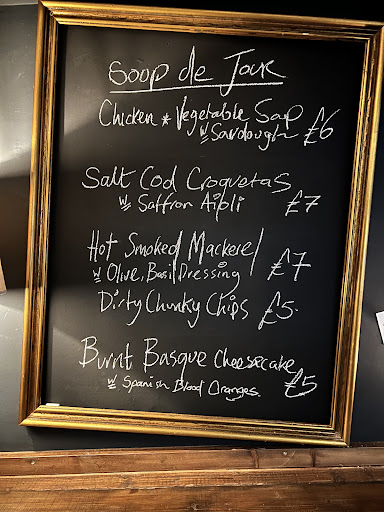 Soop de Jour
Chicken * Vegetable Soup
w Sourdough £6
Salt Cod Croquetas
w Saffron Aioli £7
Hot Smoked Mackerel
w Olive, Basil Dressing £7
Dirty Chunky Chips £5.
Burnt Basque Cheesecake
w Spanish Blood Oranges. £5